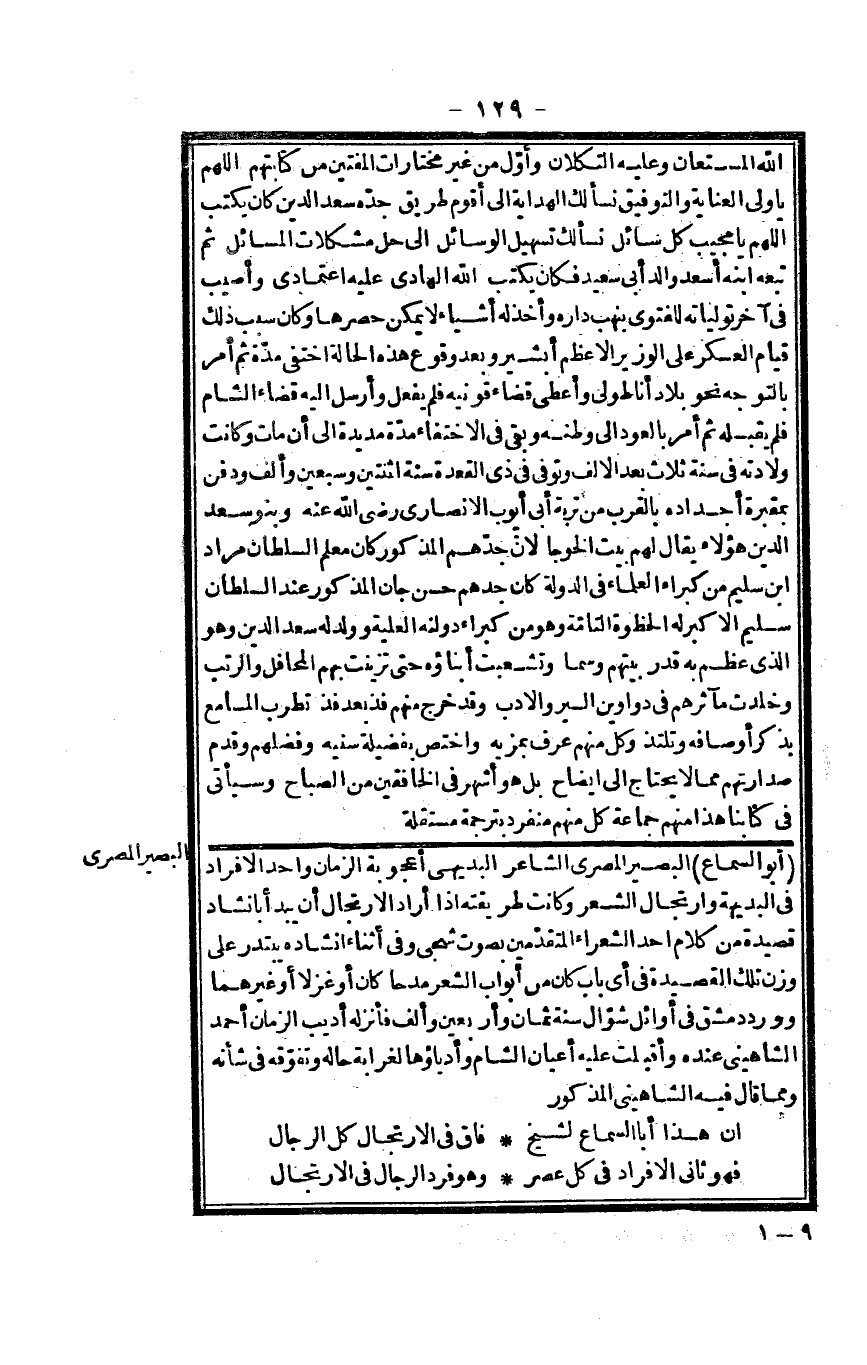 - ١٢٩ -
الله المستعان وعليه التكلان وأوّل من غير مختارات المفتين من كتابتهم اللهم
يا ولى العناية والتوفيق نسألك الهداية الى أقوم طريق جدّه سعد الدين كان يكتب
اللهم يا مجيب كل سائل نسألك تسهيل الوسائل الى حل مشكلات المسائل ثم
تبعه ابنه أسعد والد أبى سعيد فكان يكتب الله الهادى عليه اعتمادى وأصيب
فى آخر تولياته للفتوى بنهب داره وأخذ له أشياء لا يمكن حصرها وكان سبب ذلك
قيام العسكر على الوزير الاعظم أبشير وبعد وقوع هذه الحالة اختفى مدّة ثم أمر
بالتوجه نحو بلاد أناطولى وأعطى قضاء قونيه فلم يفعل وأرسل اليه قضاء الشام
فلم يقبله ثم أمر بالعود الى وطنه وبقى فى الاختفاء مدّة مديدة الى أن مات وكانت
ولادته فى سنة ثلاث بعد الالف وتوفى فى ذى القعدة سنة اثنتين وسبعين وألف ودفن
بمقبرة أجداده بالقرب من تربة أبى أيوب الانصارى رضى الله عنه وبنو سعد
الدين هؤلاء يقال لهم بيت الخوجا لانّ جدّهم المذكور كان معلم السلطان مراد
ابن سليم من كبراء العلماء فى الدولة كان جدهم حسن جان المذكور عند السلطان
سليم الاكبر له الحظوة التامّة وهو من كبراء دولته العلية وولد له سعد الدين وهو
الذى عظم به قدر بيتهم وسما وتشعبت أبناؤه حتى تزينت بهم المحافل والرتب
وخلدت مآثرهم فى دواوين السير والادب وقد خرج منهم فذ بعد فذ تطرب المسامع
بذكر أوصافه وتلتذ وكل منهم عرف بمزيه واختص بفضيلة سنيه وفضلهم وقدم
صدارتهم مما لا يحتاج الى ايضاح بل هو أشهر فى الخافقين من الصباح وسيأتى
فى كتابنا هذا منهم جماعة كل منهم منفرد بترجمة مستقلة
البصير المصرى
(أبو السماع) البصير المصرى الشاعر البديهى أعجوبة الزمان واحد الافراد
فى البديهة وارتجال الشعر وكانت طريقته اذا أراد الارتجال أن يبدأ بانشاد
قصيدة من كلام احد الشعراء المتقدّمين بصوت شجى وفى أثناء انشاده يبتدر على
وزن تلك القصيدة فى أى باب كان من أبواب الشعر مدحا كان أو غزلا أو غيرهما
وورد دمشق فى أوائل شوّال سنة ثمان وأربعين وألف فأنزله أديب الزمان أحمد
الشاهينى عنده وأقبلت عليه أعيان الشام وأدباؤها لغرابة حاله وتفوّقه فى شأنه
ومما قال فيه الشاهينى المذكور
ان هذا أبا السماع لشيخ * فاق فى الارتجال كل الرجال
فهو ثانى الافراد فى كل عصر * وهو فرد الرجال فى الارتجال
٩ — ١